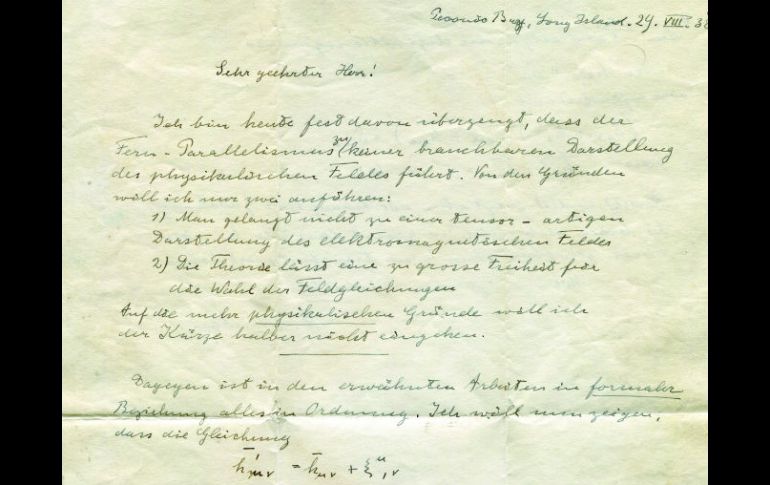 Peconic Bay, Long Island. 29. VIII. 38
Sehr geehrter Herr!
Ich bin heute fest davon überzeugt, dass der
Fern-Parallelismus zu keiner brauchbaren Darstellung
des physikalischen Feldes führt. Von den Gründen
will ich nur zwei anführen:
1) Man gelangt nicht zu einer tensor-artigen
Darstellung des elektromagnetischen Feldes
2) Die Theorie lässt eine zu grosse Freiheit für
die Wahl der Feldgleichungen
Auf die mehr physikalischen Gründe will ich
der Kürze halber nicht eingehen.
Dagegen ist in den erwähnten Arbeiten in formaler
Beziehung alles in Ordnung. Ich will nun zeigen,
dass die Gleichung